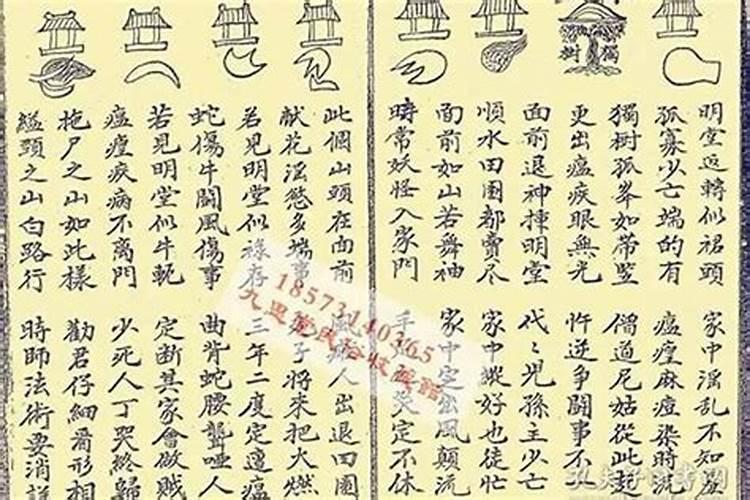 獨樹
明堂返轉似裙頭 家中淫乱不知羞
孤寡少亡端的有 瘟瘽麻痘染時流
獨樹孤峯如帶竪 僧道尼姑從此起
更出瘟疾眼無光 忤逆争鬪事不
面前退神揀明堂 代々兒孫主少亡
順水田園都賣尽 家中縱好也徒忙
面前如山若舞袖 家中定出風顛流
時常妖怪入家門 手哭定不休
此個山頭在面前 人出退田園
献花淫慾多端事 子將來把火燃
若見明堂似祿存 三年二度定遭瘟
蛇傷牛鬪風傷事 曲背蛇腰聾哑人
若見明堂似牛軛 定断其家會做贼
瘟瘽疾病不离門 少死人丁哭終歸
拖尸之山如此樣 勸君仔細看形相
縊頭之山白路行 時師法術要消詳
18573140365
民俗收藏館
孔夫子旧书网